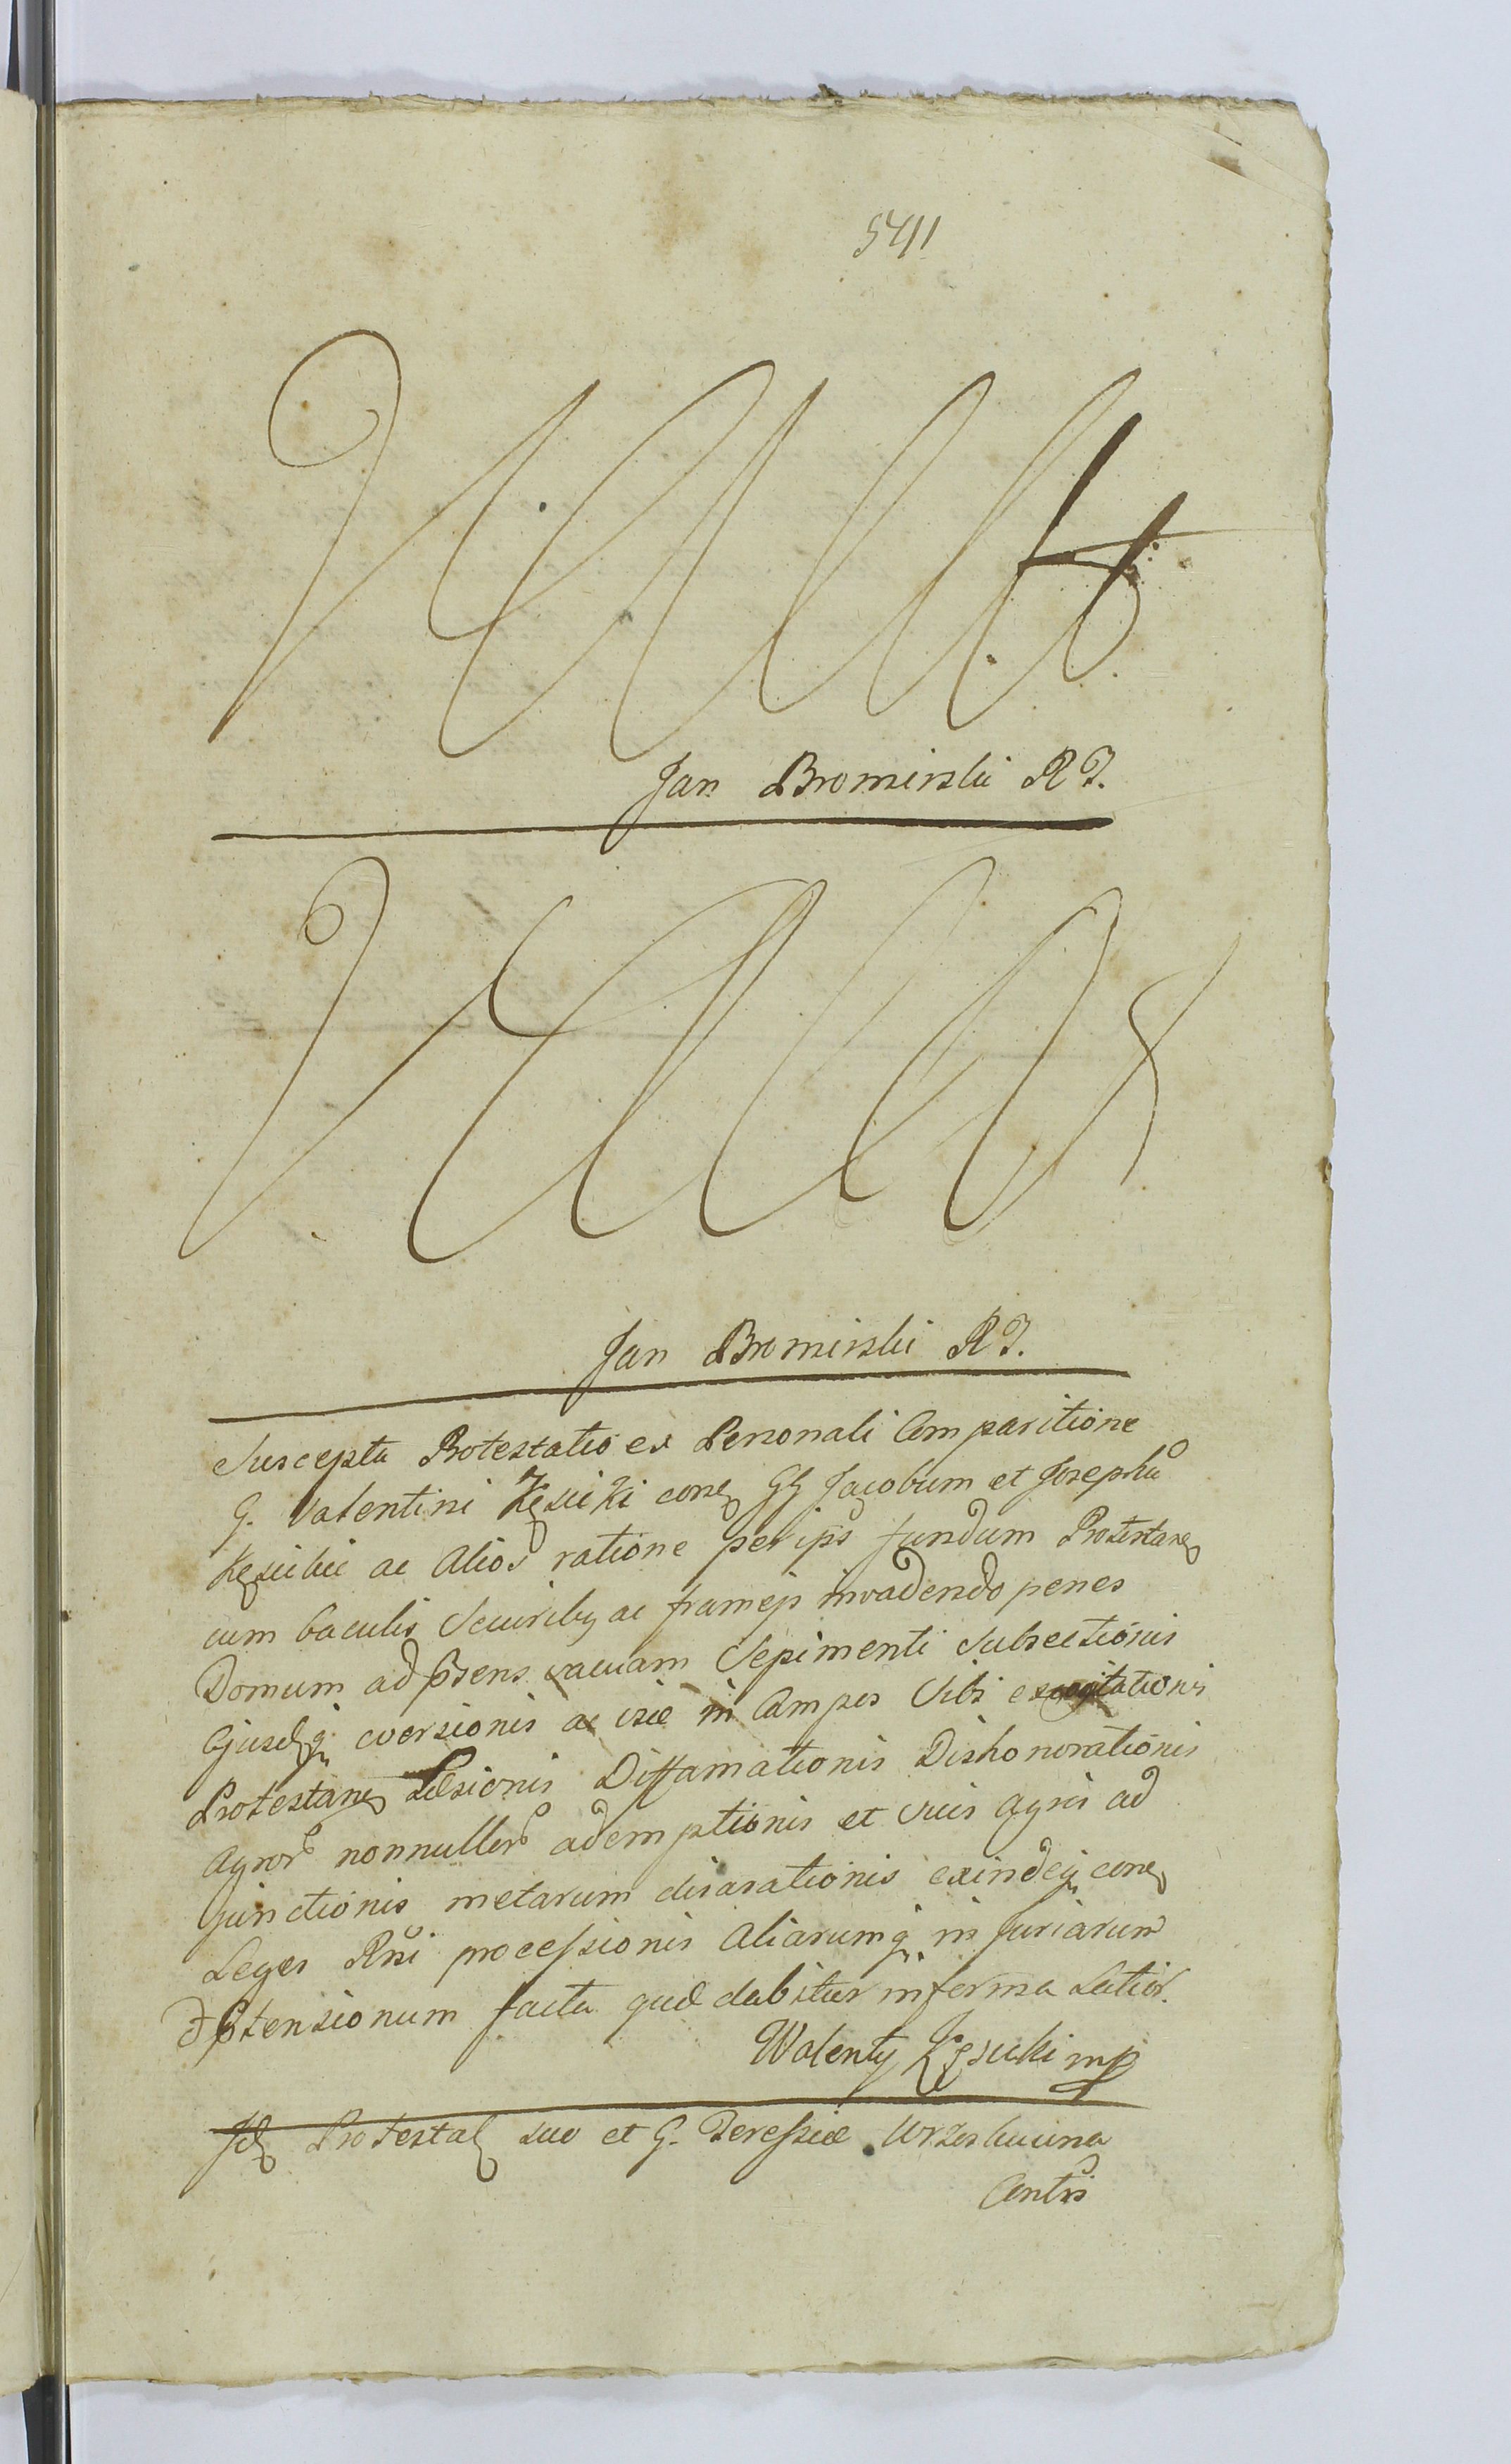 5411
Jan Bromirski R J.
Jan Bromirski R J.
Suscepta Protestatio ex Personali Comparitione
G. Valentini Kęsicki cone GG Jacobum et Josephū
Kęsickie ac Alios ratione per ips fundum Protestane
cum baculis Securibq ac frameis invadendo penes
Domum ad psens vacuam Sepimenti Subsectionis
Ejusdq eversionis ac in Campos Sibi excogitationis
Protestane Læsionis Diffamationis Dishonorationis
Agror nonnullor ademptionis et suis Agris ad
junctionis metarum disarationis exindeq cone
Leges Rni processionis Aliarumq injuriarum
ptensionum facta quæ dabitur in forma Latior.
Walenty Kęsicki mp
Id Protestat suo et G. Teressiæ